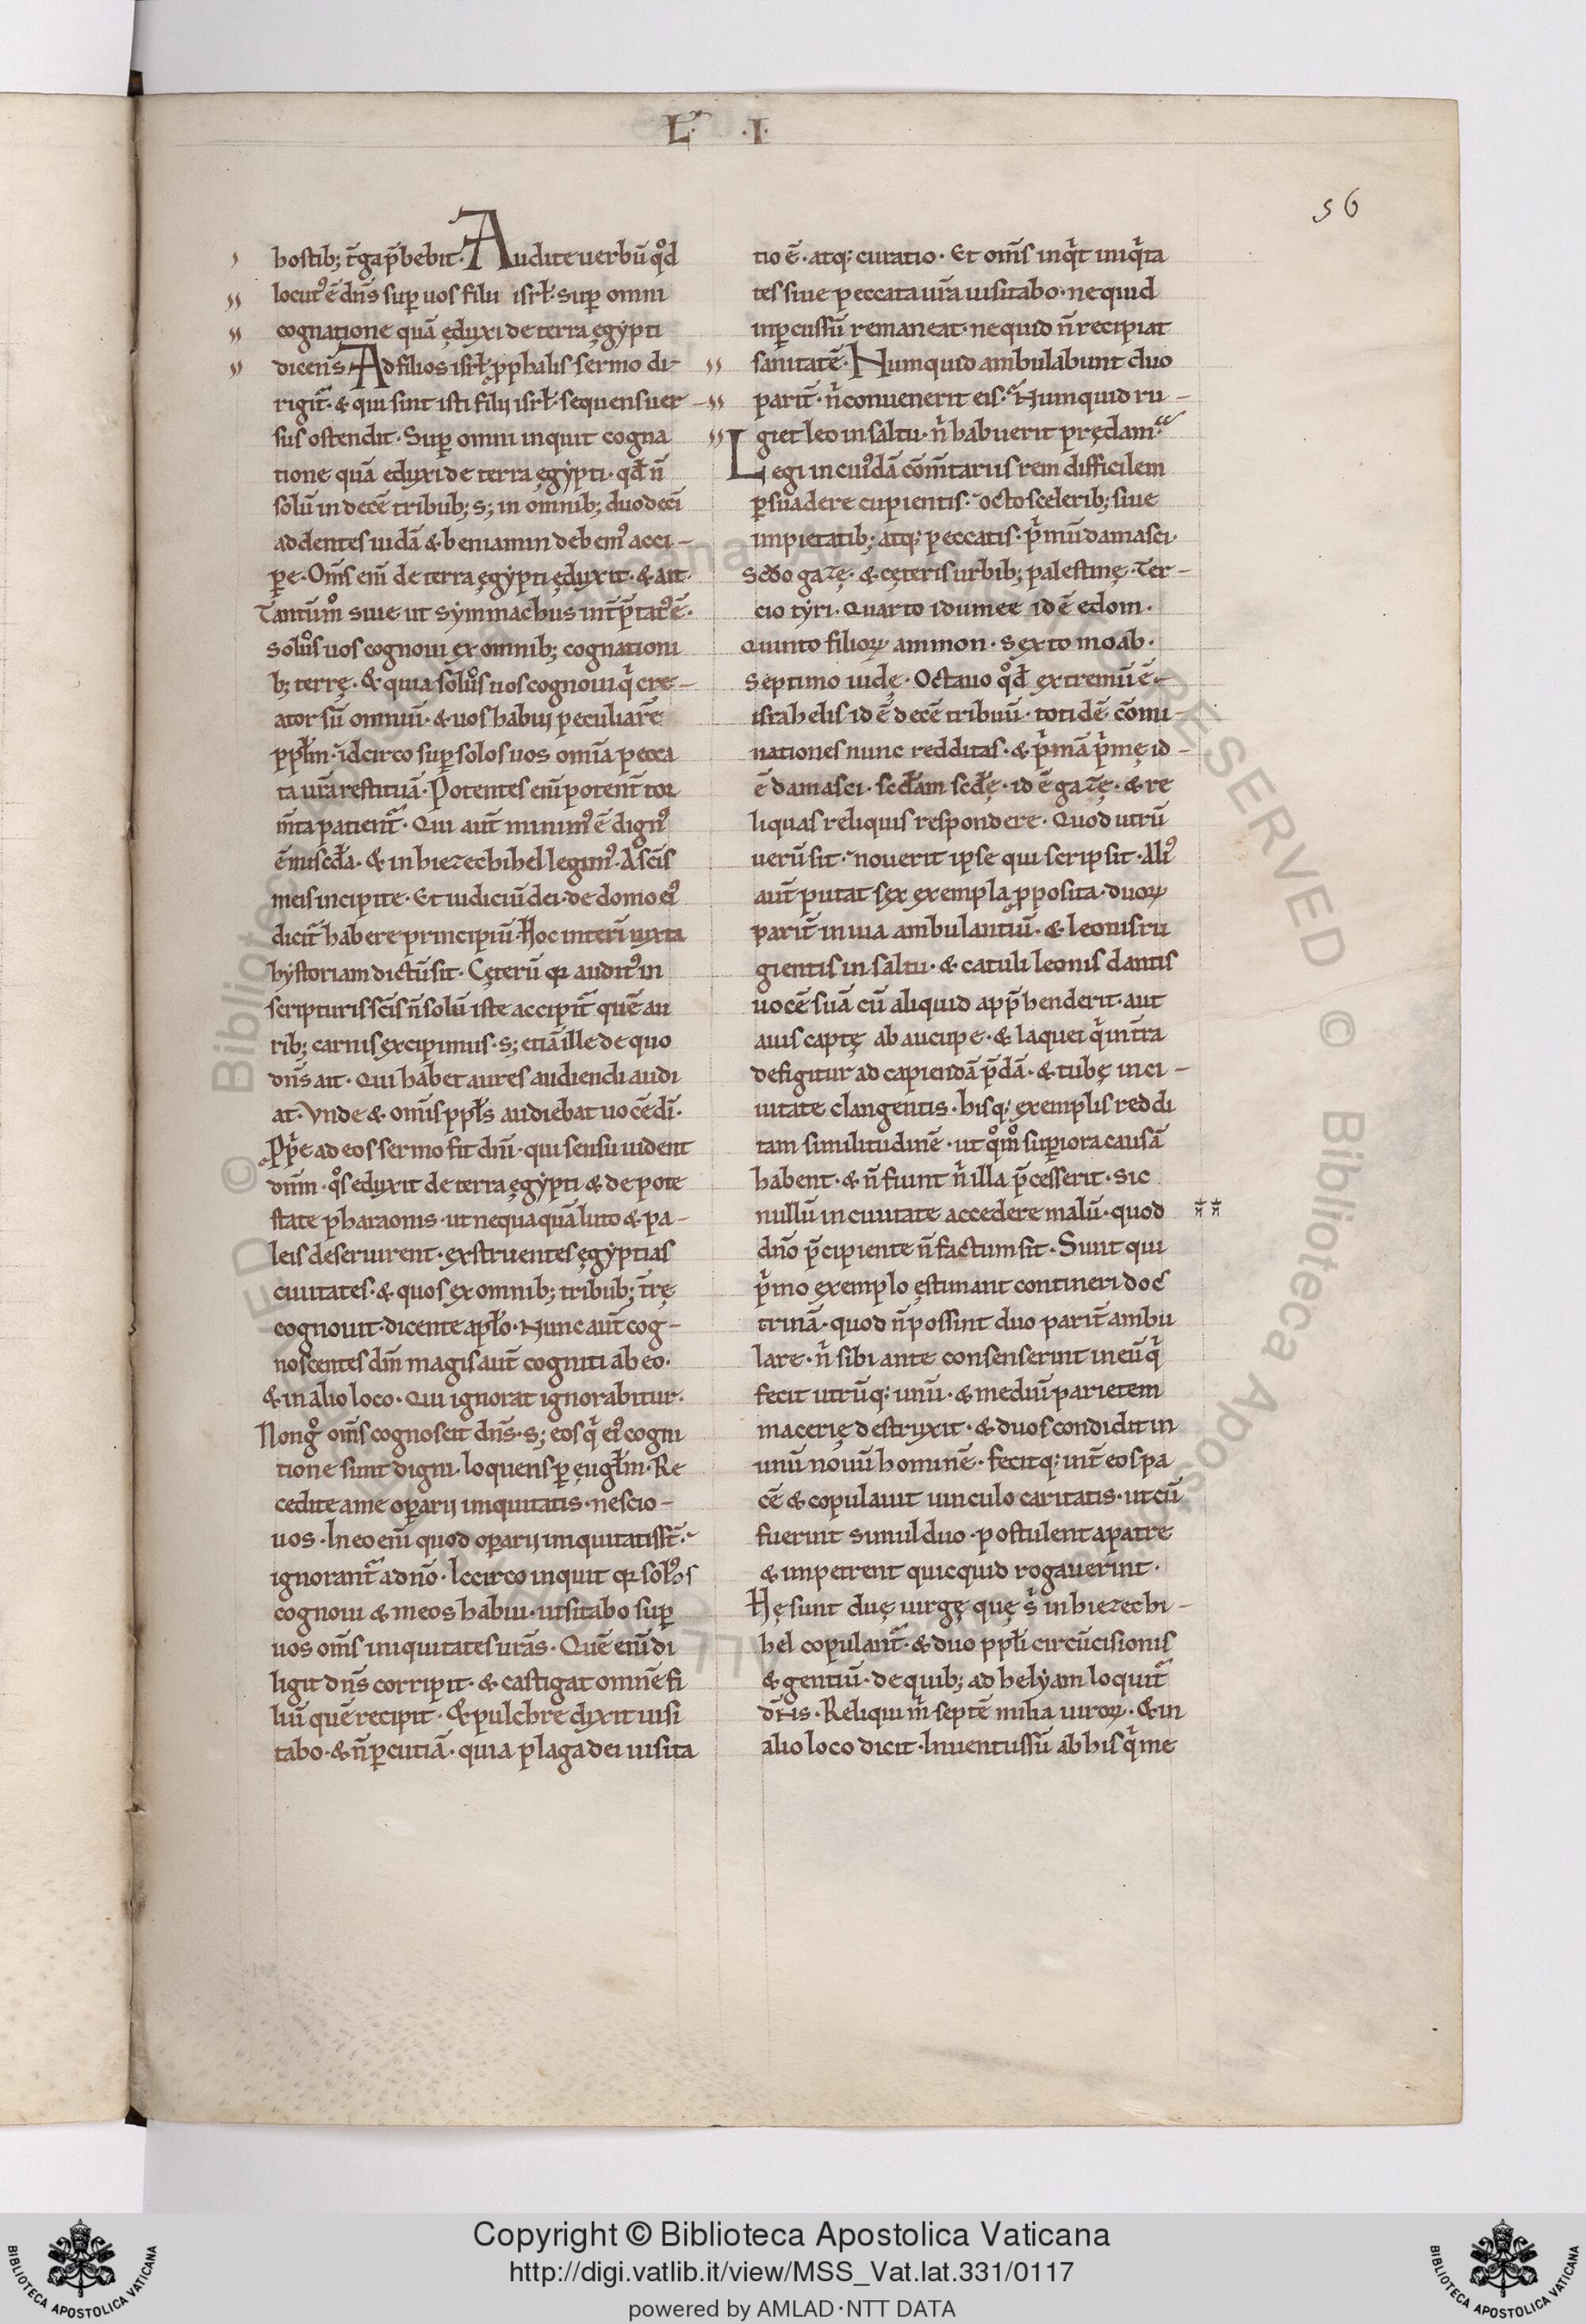 L. .I.
56
hostib; t̄ga p̄bebit. Audite uerbū qͦd
locutꝰ ē dn̄s suꝑ uos filii isrł. suꝑ omni
cognatione quā ęduxi de terra ęgẏpti
dicen̄s. Ad filios isrł. ꝓphalis sermo di-
rigit᷑. & qui sint isti filij isrł. sequens uer-
sus ostendit. Suꝑ omni inquit cogna
tione quā eduxi de terra ęgẏpti. qd̄ n̄
solū in decē tribub; s; in omnib; duodecī
addentes iudā & beniamin debemꝰ acci-
ꝑe. Om̄s eni̅ de terra ęgẏpti ęduxit. & ait.
Tantūmͦ siue ut sẏmmachus int̄p̄tatꝰ ē.
solūͦs uos cognoui ex omnib; cognationi
b; terrę. & quia solūͦs uos cognoui qͥ cre-
ator sū omniū. & uos habui peculiarē
ppłm. idcirco suꝑ solos uos omīa pecca
ta ur̄a restituā. Potentes eni̅ potent̄ tor
m̄ta patient᷑. Qui aut̄ minimꝰ ē dignꝰ
ē mis̄c̄d̄a. & in hiezechihel legimꝰ. A sc̄is
meis incipite. Et iudiciū dei. de domo eiꝰ
dicit᷑ habere principiū. Hoc interī iuxta
hẏstoriam dictū sit. Cęterū qꝛ auditꝰ in
scripturis sc̄is n̄ solū iste accipit᷑ quē au
rib; carnis excipimus. s; etiā ille de quo
dn̄s ait. Qui habet aures audiendi audi
at. Vnde & om̄is ppłs audiebat uocē di̅.
Ꝓpͥe ad eos sermo fit dn̄i. qui sensu uident
dn̄m. qͦs eduxit de terra ęgẏpti & de pote
state pharaonis. ut nequaquā luto & pa-
leis deseruirent. exstruentes ęgẏptias
ciuitates. & quos ex omnib; tribub; t̄rę
cognouit. dicente apło. Nunc aut̄ cog-
noscentes dm̄ magis aut̄ cogniti ab eo.
& in alio loco. Qui ignorat ignorabitur.
Non gͦ om̄s cognoscit dn̄s. s; eos qͥ eiꝰ cogni
tione sunt digni. loquens ꝑ eugłm. Re
cedite a me oꝑarij iniquitatis. nescio-
uos. In eo eni̅ quod oꝑarij iniquitatis st̄.
ignorant᷑ a dn̄o. Iccirco inquit qꝛ solꝰos
cognoui & meos habui. uisitabo suꝑ
uos om̄s iniquitates ur̄as. Quē eni̅ di
ligit dn̄s corripit. & castigat omnē fi
liū quē recipit. & pulchre dixit uisi
tabo. & n̄ ꝑcutiā. quia plaga dei uisita
tio ē. atq; curatio. Et om̄s inqͥt iniqͥta
tes siue peccata ur̄a uisitabo. ne quid
inꝑcussū remaneat. ne quid n̄ recipiat
sanitatē. Numquid ambulabunt duo
parit̄. nͥ conuenerit eis. Numquid ru-
giet leo in saltu. nͥ habuerit prędam.
Legi in cuiꝰdā com̄tariis rem difficilem
ꝑsuadere cupientis. octo scelerib; siue
impietatib; atq; peccatis. pͥmū damasci.
Scd̄o gazę. & cęteris urbib; palestinę. Ter-
cio tẏri. Quarto idumee id ē edom.
Quinto filioꝝ ammon. Sexto moab.
Septimo iudę. Octauo qͦd̄ extremū ē-
israhelis id ē decē tribuū. totidē com̄i-
nationes nunc redditas. & pͥmā pͥmę id-
ē damasci. scd̄am scd̄ę. id ē gazę. & re
liquas reliquis respondere. Quod utrū
uerū sit. nouerit ipse qui scripsit. Aliꝰ
aut̄ putat sex exempla ꝓposita. duoꝝ
parit̄ in uia ambulantiū. & leonis ru
gientis in saltu. & catuli leonis dantis
uocē suā cū aliquid app̄henderit. aut
auis captę ab aucupe. & laquei qͥ int̄ra
defigitur ad capiendā p̄dā. & tubę in ci-
uitate clangentis. hisq; exemplis reddi
tam similitudinē. ut qͦmͦ suꝑiora causā
habent. & n̄ fiunt nͥ illa p̄cesserit. sic
nullū in ciuitate accedere malū. quod
dn̄o p̄cipiente n̄ factum sit. Sunt qui
pͥmo exemplo ęstimant contineri doc
trinā. quod n̄ possint duo parit̄ ambu
lare. nͥ sibi ante consenserint in eū qͥ
fecit utrūq; unū. & mediū parietem
macerię destruxit. & duos condidit in
unū nouū hominē. fecitq; int̄ eos pa
cē & copulauit uinculo caritatis. ut cū
fuerint simul duo. postulent a patre
& impetrent quicquid rogauerint.
Hę sunt duę uirgę quę sͥ in hiezechi-
hel copulant᷑. & duo ppłi circūcisionis
& gentiū. de quib; ad helẏam loquit᷑
dn̄s. Reliqui mͥ septē milia uiroꝝ. & in
alio loco dicit. Inuentus sū ab his qͥ me
Copyright © Biblioteca Apostolica Vaticana
http://digi.vatlib.it/view/MSS_Vat.lat.331/0117
powered by AMLAD·NTT DATA
BIBLIOTECA APOSTOLICA VATICANA
BIBLIOTECA APOSTOLICA VATICANA